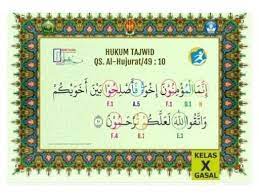 HUKUM TAJWID
QS. Al-Hujurat/49 : 10
إِنَّمَا الْمُؤْمِنُوْنَ إِخْوَةٌ فَأَصْلِحُوْا بَيْنَ أَخَوَيْكُمْ
F.1 A.5 F.1
وَاتَّقُوا اللّٰهَ لَعَلَّكُمْ تُرْحَمُوْنَ ۝١٠
KELAS
X
GASAL